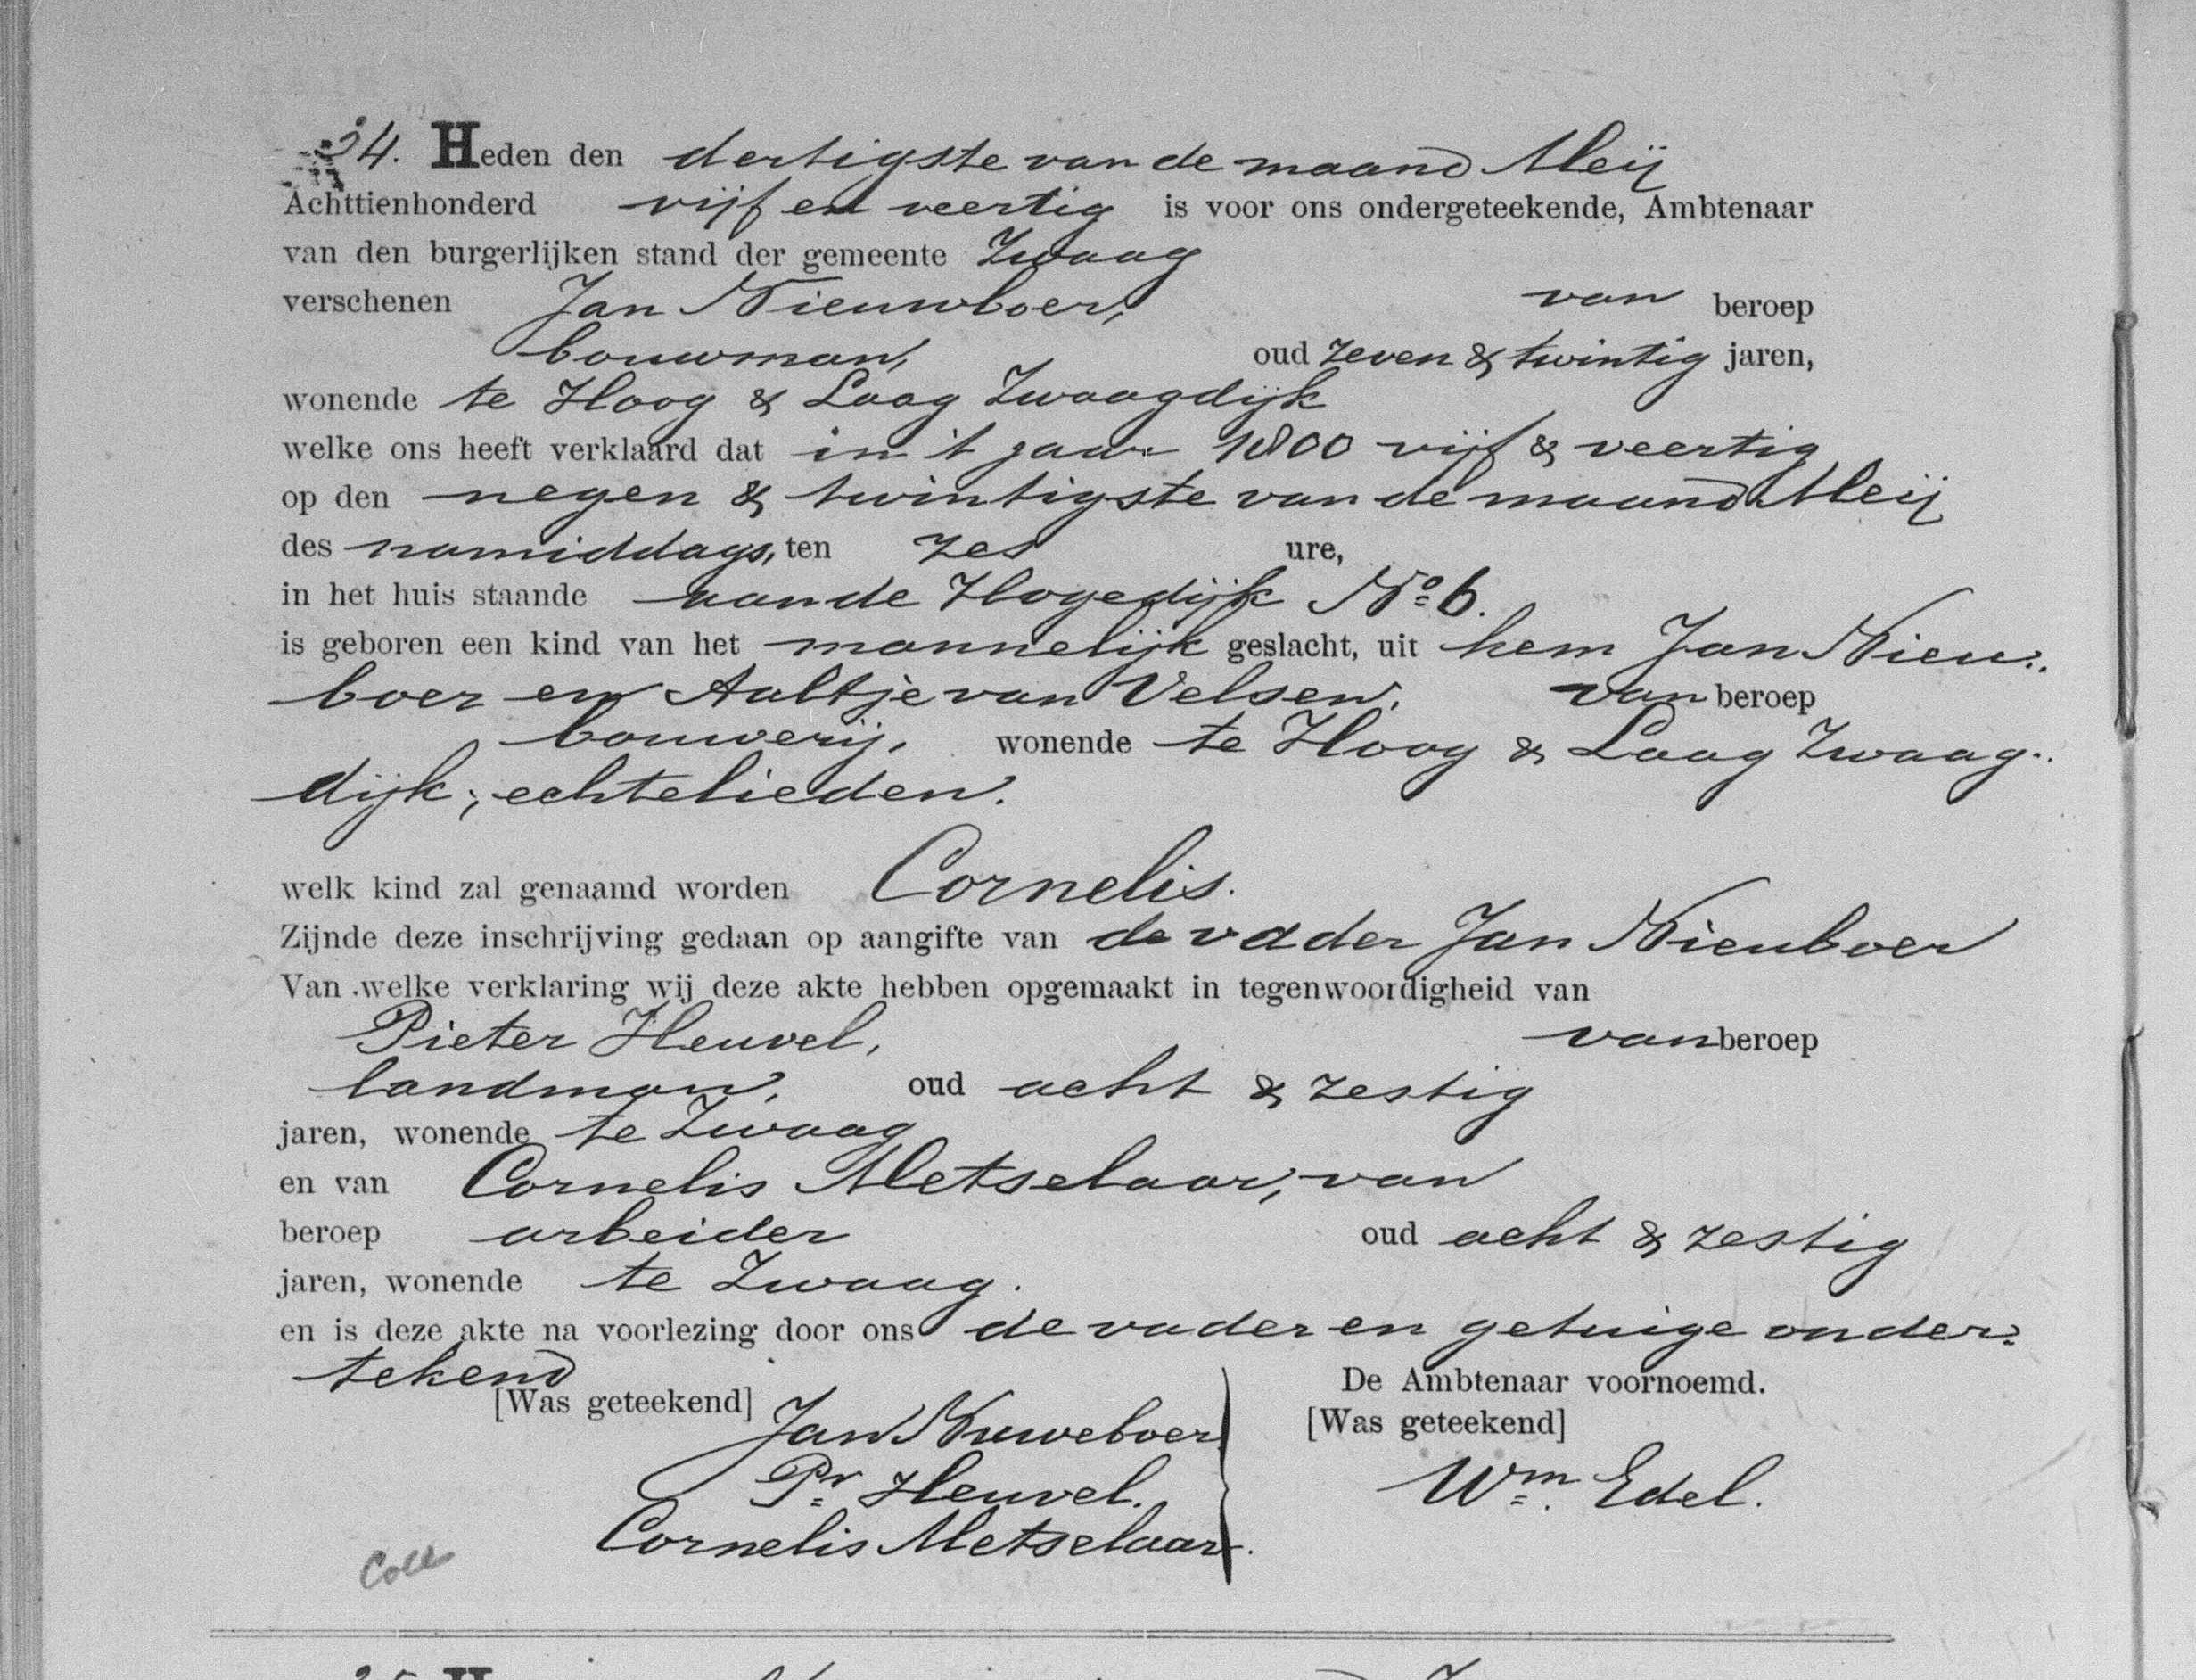 34. Heden den dertigste van de maand Meij
Achttienhonderd vijf en veertig is voor ons ondergeteekende, Ambtenaar
van den burgerlijken stand der gemeente Zwaag
verschenen Jan Nieuwboer, van beroep
bouwman, oud zeven & twintig jaren,
wonende te Hoog & Laag Zwaagdijk
welke ons heeft verklaard dat in 't jaar 1800 vijf & veertig
op den negen & twintigste van de maand Meij
des namiddags, ten zes ure,
in het huis staande aan de Hogedijk No 6.
is geboren een kind van het mannelijk geslacht, uit hem Jan Nieu:
boer en Aaltje van Velsen, van beroep
bouwerij, wonende te Hoog & Laag Zwaag:
dijk; echtelieden.
welk kind zal genaamd worden Cornelis.
Zijnde deze inschrijving gedaan op aangifte van de vader Jan Nieuboer
Van welke verklaring wij deze akte hebben opgemaakt in tegenwoordigheid van
Pieter Heuvel, van beroep
landman, oud acht & zestig
jaren, wonende te Zwaag
en van Cornelis Metselaar, van
beroep arbeider oud acht & zestig
jaren, wonende te Zwaag.
en is deze akte na voorlezing door ons de vader en getuige onder:
tekend
[Was geteekend] De Ambtenaar voornoemd.
Jan Nuweboer [Was geteekend]
Pr Heuvel. Wm. Edel.
Cornelis Metselaar.
Coll